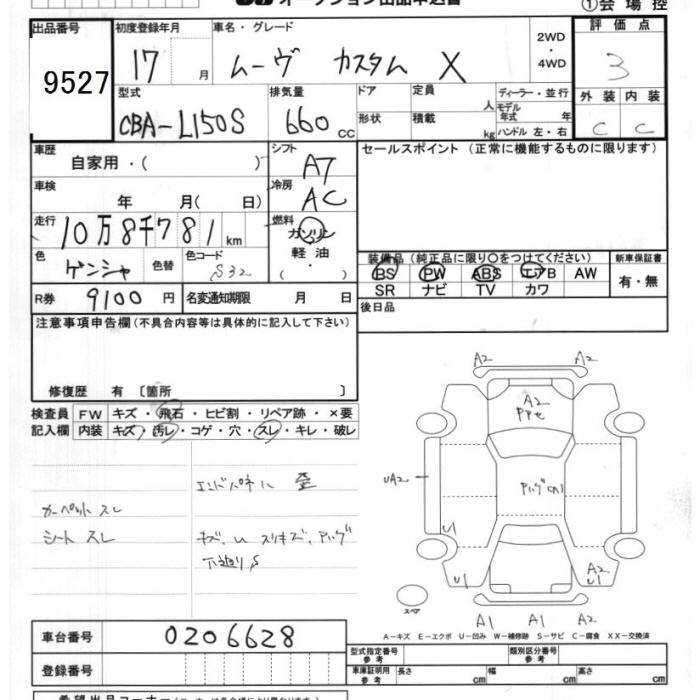 オークション出品申込書
①会場控
出品番号
9527
初度登録年月
17 月
車名・グレード
ムーヴ カスタム X
2WD・4WD
評価点
3
型式
CBA-L150S
排気量
660 CC
ドア
形状
定員 人
積載 kg
ディーラー・並行
モデル年式 年
ハンドル 左・右
外装 内装
C C
車歴
自家用・( )
シフト
A7
セールスポイント(正常に機能するものに限ります)
車検
年 月( 日)
冷房
AC
走行
10万8千781km
燃料
ガソリン
軽油
( ・ )
色
ゲンシャ
色替
色コード
S32
装備品(純正品に限り○をつけてください)
BS PW ABS エアB AW
SR ナビ TV カワ
新車保証書
有・無
R券
9100 円
名変通知期限 月 日
後日品
注意事項申告欄(不具合内容等は具体的に記入して下さい)
修復歴 有 〔箇所 〕
検査員記入欄
FW キズ・飛石・ヒビ割・リペア跡・×要
内装 キズ・汚レ・コゲ・穴・スレ・キレ・破レ
カーペット スレ
シート スレ
エンドパネル 歪
キズ、U スリキズ、アリング
下廻りS
A2 A2
A2
UA2
U1
U1
A2
U1
スペア
A1 A1 A2
A-キズ E-エクボ U-凹み W-補修跡 S-サビ C-腐食 XX-交換済
車台番号
0206628
登録番号
型式指定番号 参考
類別区分番号 参考
車庫証明用 参考
長さ cm 幅 cm 高さ cm